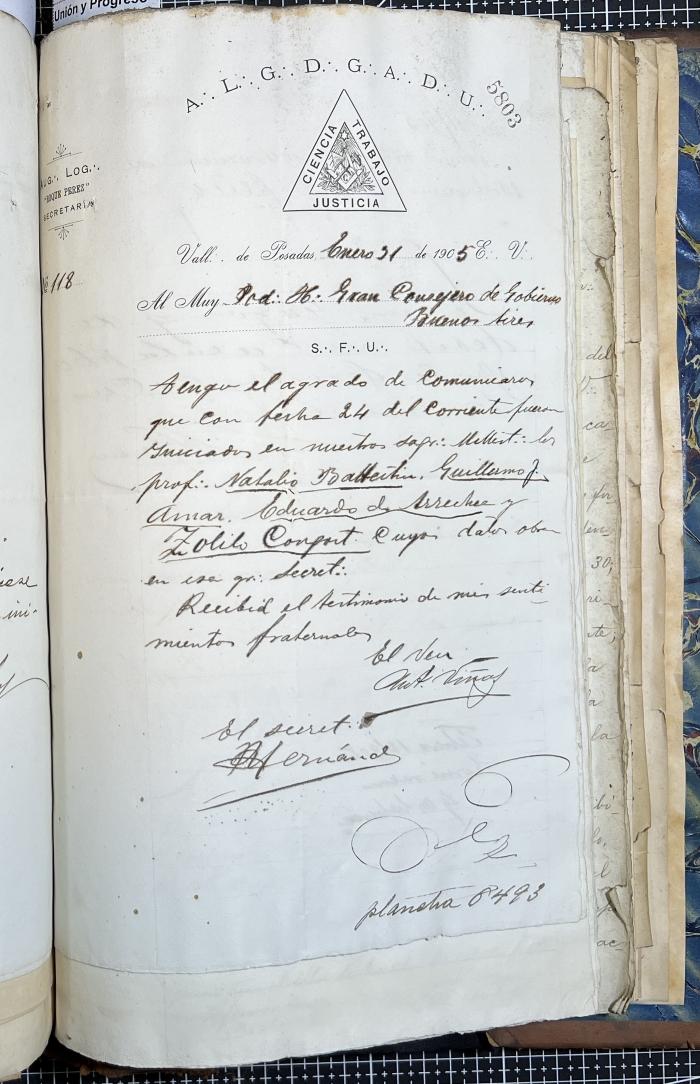 Unión y Progreso
A∴ L∴ G∴ D∴ G∴ A∴ D∴ U∴
5803
CIENCIA TRABAJO
JUSTICIA
AUG∴ LOG∴
"ROQUE PEREZ"
SECRETARÍA
Nº 118
Vall∴ de Posadas Enero 31 de 1905 E∴ V∴
Al Muy Pod∴ H∴ Gran Consejero de Gobierno
Buenos Aires
S∴ F∴ U∴
Tengo el agrado de comunicaros
que con fecha 24 del corriente fueron
Iniciados en nuestros sagr∴ Mist∴ los
prof∴ Natalio Ballestin, Guillermo J.
Amar, Eduardo de Arrechea y
Zolilo Confort. Cuyos datos obran
en esa gr∴ Secret∴
Recibid el testimonio de mis senti-
mientos fraternales
El Ven
Ant. Viñas
El secret∴
Hernánd
plancha 8493